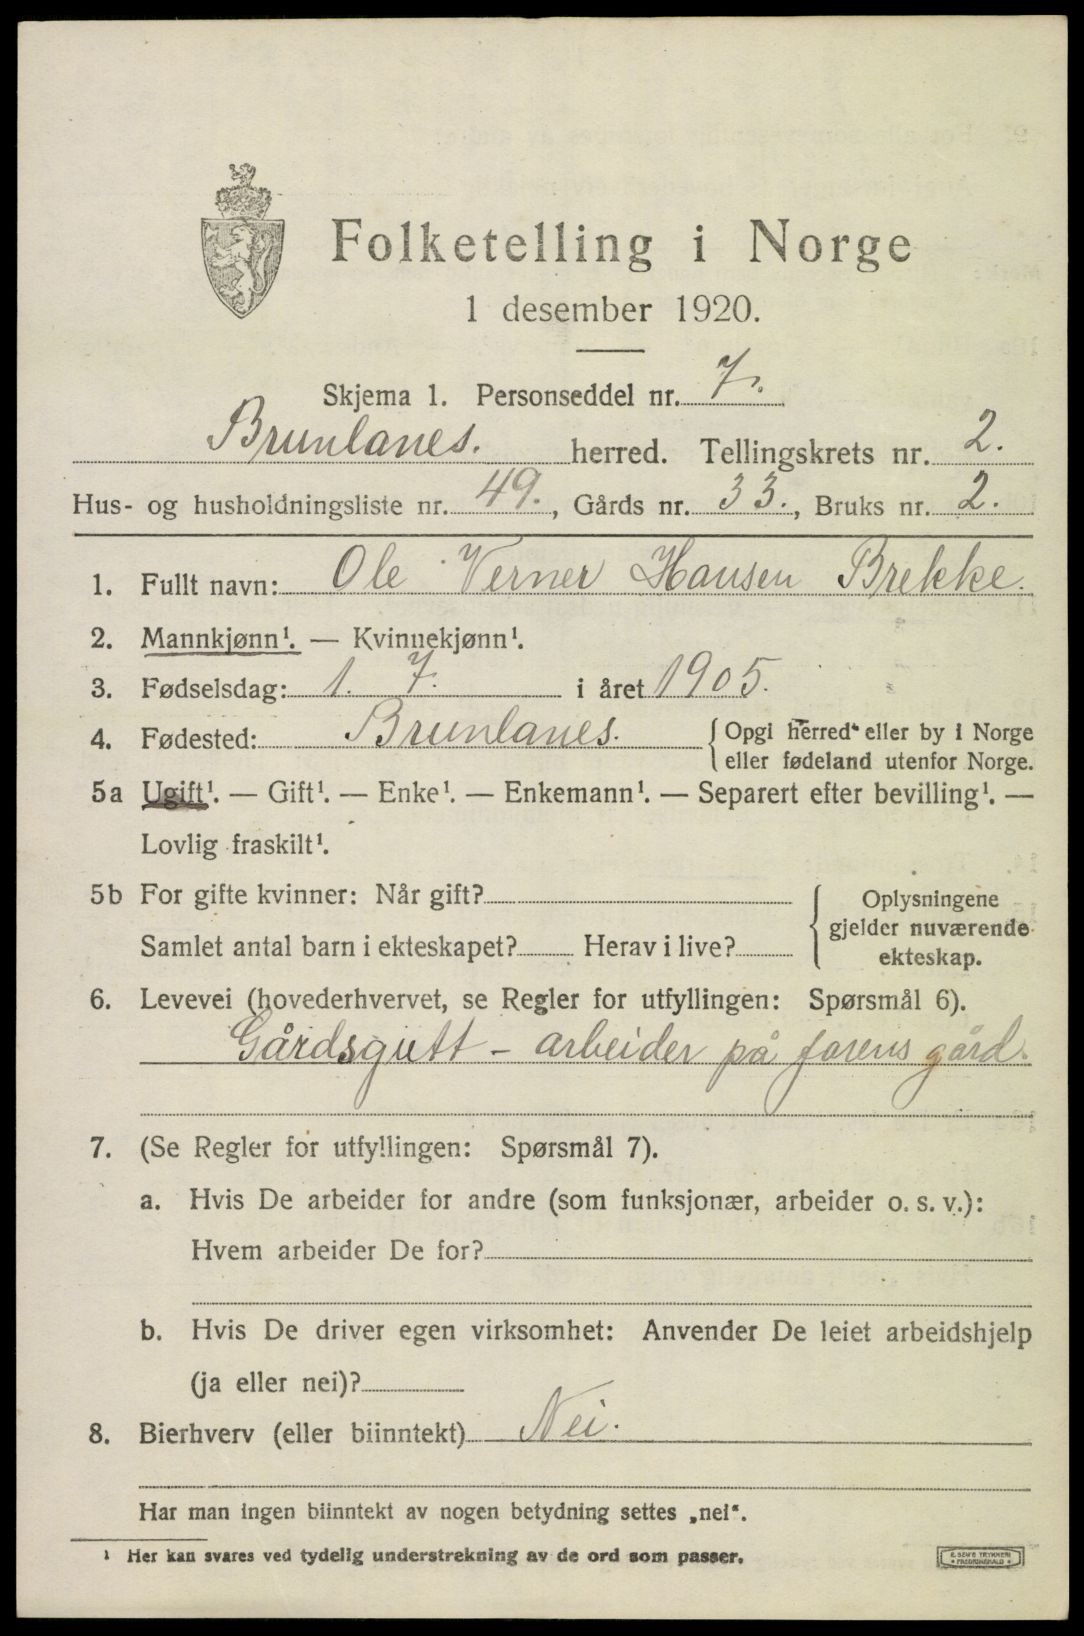 Folketelling i Norge
1 desember 1920.
Skjema 1. Personseddel nr. 7.
Brunlanes. herred. Tellingskrets nr. 2.
Hus- og husholdningsliste nr. 49., Gårds nr. 33., Bruks nr. 2.
1. Fullt navn: Ole Verner Hansen Brekke.
2. Mannkjønn¹. — Kvinnekjønn¹.
3. Fødselsdag: 1. 7. i året 1905.
4. Fødested: Brunlanes. { Opgi herred* eller by i Norge
eller fødeland utenfor Norge.
5a Ugift¹. — Gift¹. — Enke¹. — Enkemann¹. — Separert efter bevilling¹. —
Lovlig fraskilt¹.
5b For gifte kvinner: Når gift?
Samlet antal barn i ekteskapet? Herav i live?
{ Oplysningene
gjelder nuværende
ekteskap.
6. Levevei (hovederhvervet, se Regler for utfyllingen: Spørsmål 6).
Gårdsgutt – arbeider på farens gård.
7. (Se Regler for utfyllingen: Spørsmål 7).
a. Hvis De arbeider for andre (som funksjonær, arbeider o. s. v.):
Hvem arbeider De for?
b. Hvis De driver egen virksomhet: Anvender De leiet arbeidshjelp
(ja eller nei)?
8. Bierhverv (eller biinntekt) Nei.
Har man ingen biinntekt av nogen betydning settes „nei“.
¹ Her kan svares ved tydelig understrekning av de ord som passer.
E. SEM'S TRYKKERI
FREDRIKSHALD